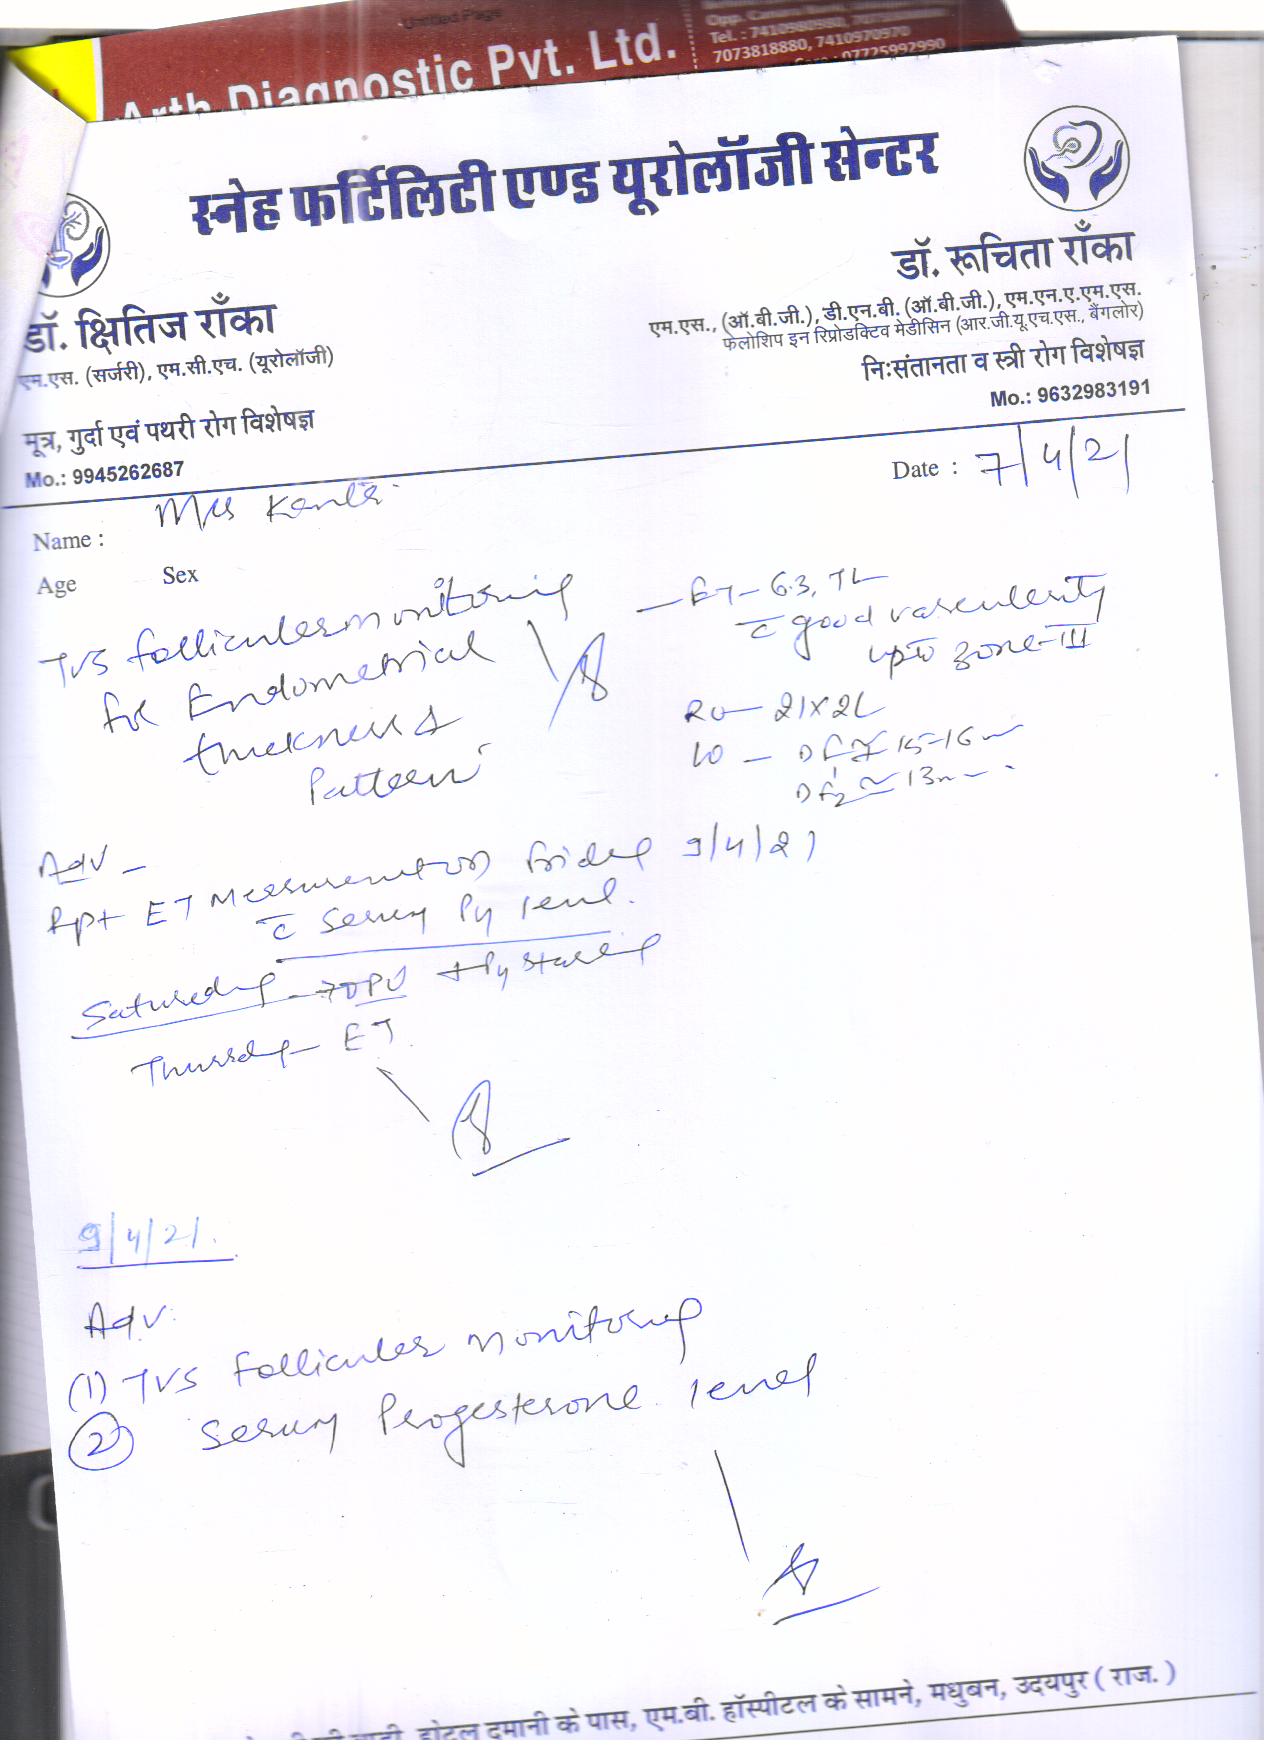 Untitled Page
Arth Diagnostic Pvt. Ltd.
Tel. : 7410980980,
7073818880, 7410970970
07725992990
स्नेह फर्टिलिटी एण्ड यूरोलॉजी सेन्टर
डॉ. क्षितिज राँका
एम.एस. (सर्जरी), एम.सी.एच. (यूरोलॉजी)
मूत्र, गुर्दा एवं पथरी रोग विशेषज्ञ
Mo.: 9945262687
डॉ. रूचिता राँका
एम.एस., (ऑ.बी.जी.), डी.एन.बी. (ऑ.बी.जी.), एम.एन.ए.एम.एस.
फेलोशिप इन रिप्रोडक्टिव मेडीसिन (आर.जी.यू.एच.एस., बैंगलोर)
निःसंतानता व स्त्री रोग विशेषज्ञ
Mo.: 9632983191
Date : 7/4/21
Name : Mrs
Age Sex
TVS follicular monitoring
for Endometrial
thickness &
Pattern
- ET - 6.3, TL
c̄ good vascularity
upto zone-III
RO - 21x2
LO - DF1 ≃ 15-16
DF2 ≃ 13
Adv -
Rpt ET Measurement on friday 9/4/21
c̄ Serum Pg level.
Saturday - OPU + Pg
Thursday - ET.
9/4/21.
Adv.
(1) TVS follicular monitoring
(2) Serum Progesterone level
होटल दमानी के पास, एम.बी. हॉस्पीटल के सामने, मधुबन, उदयपुर ( राज. )